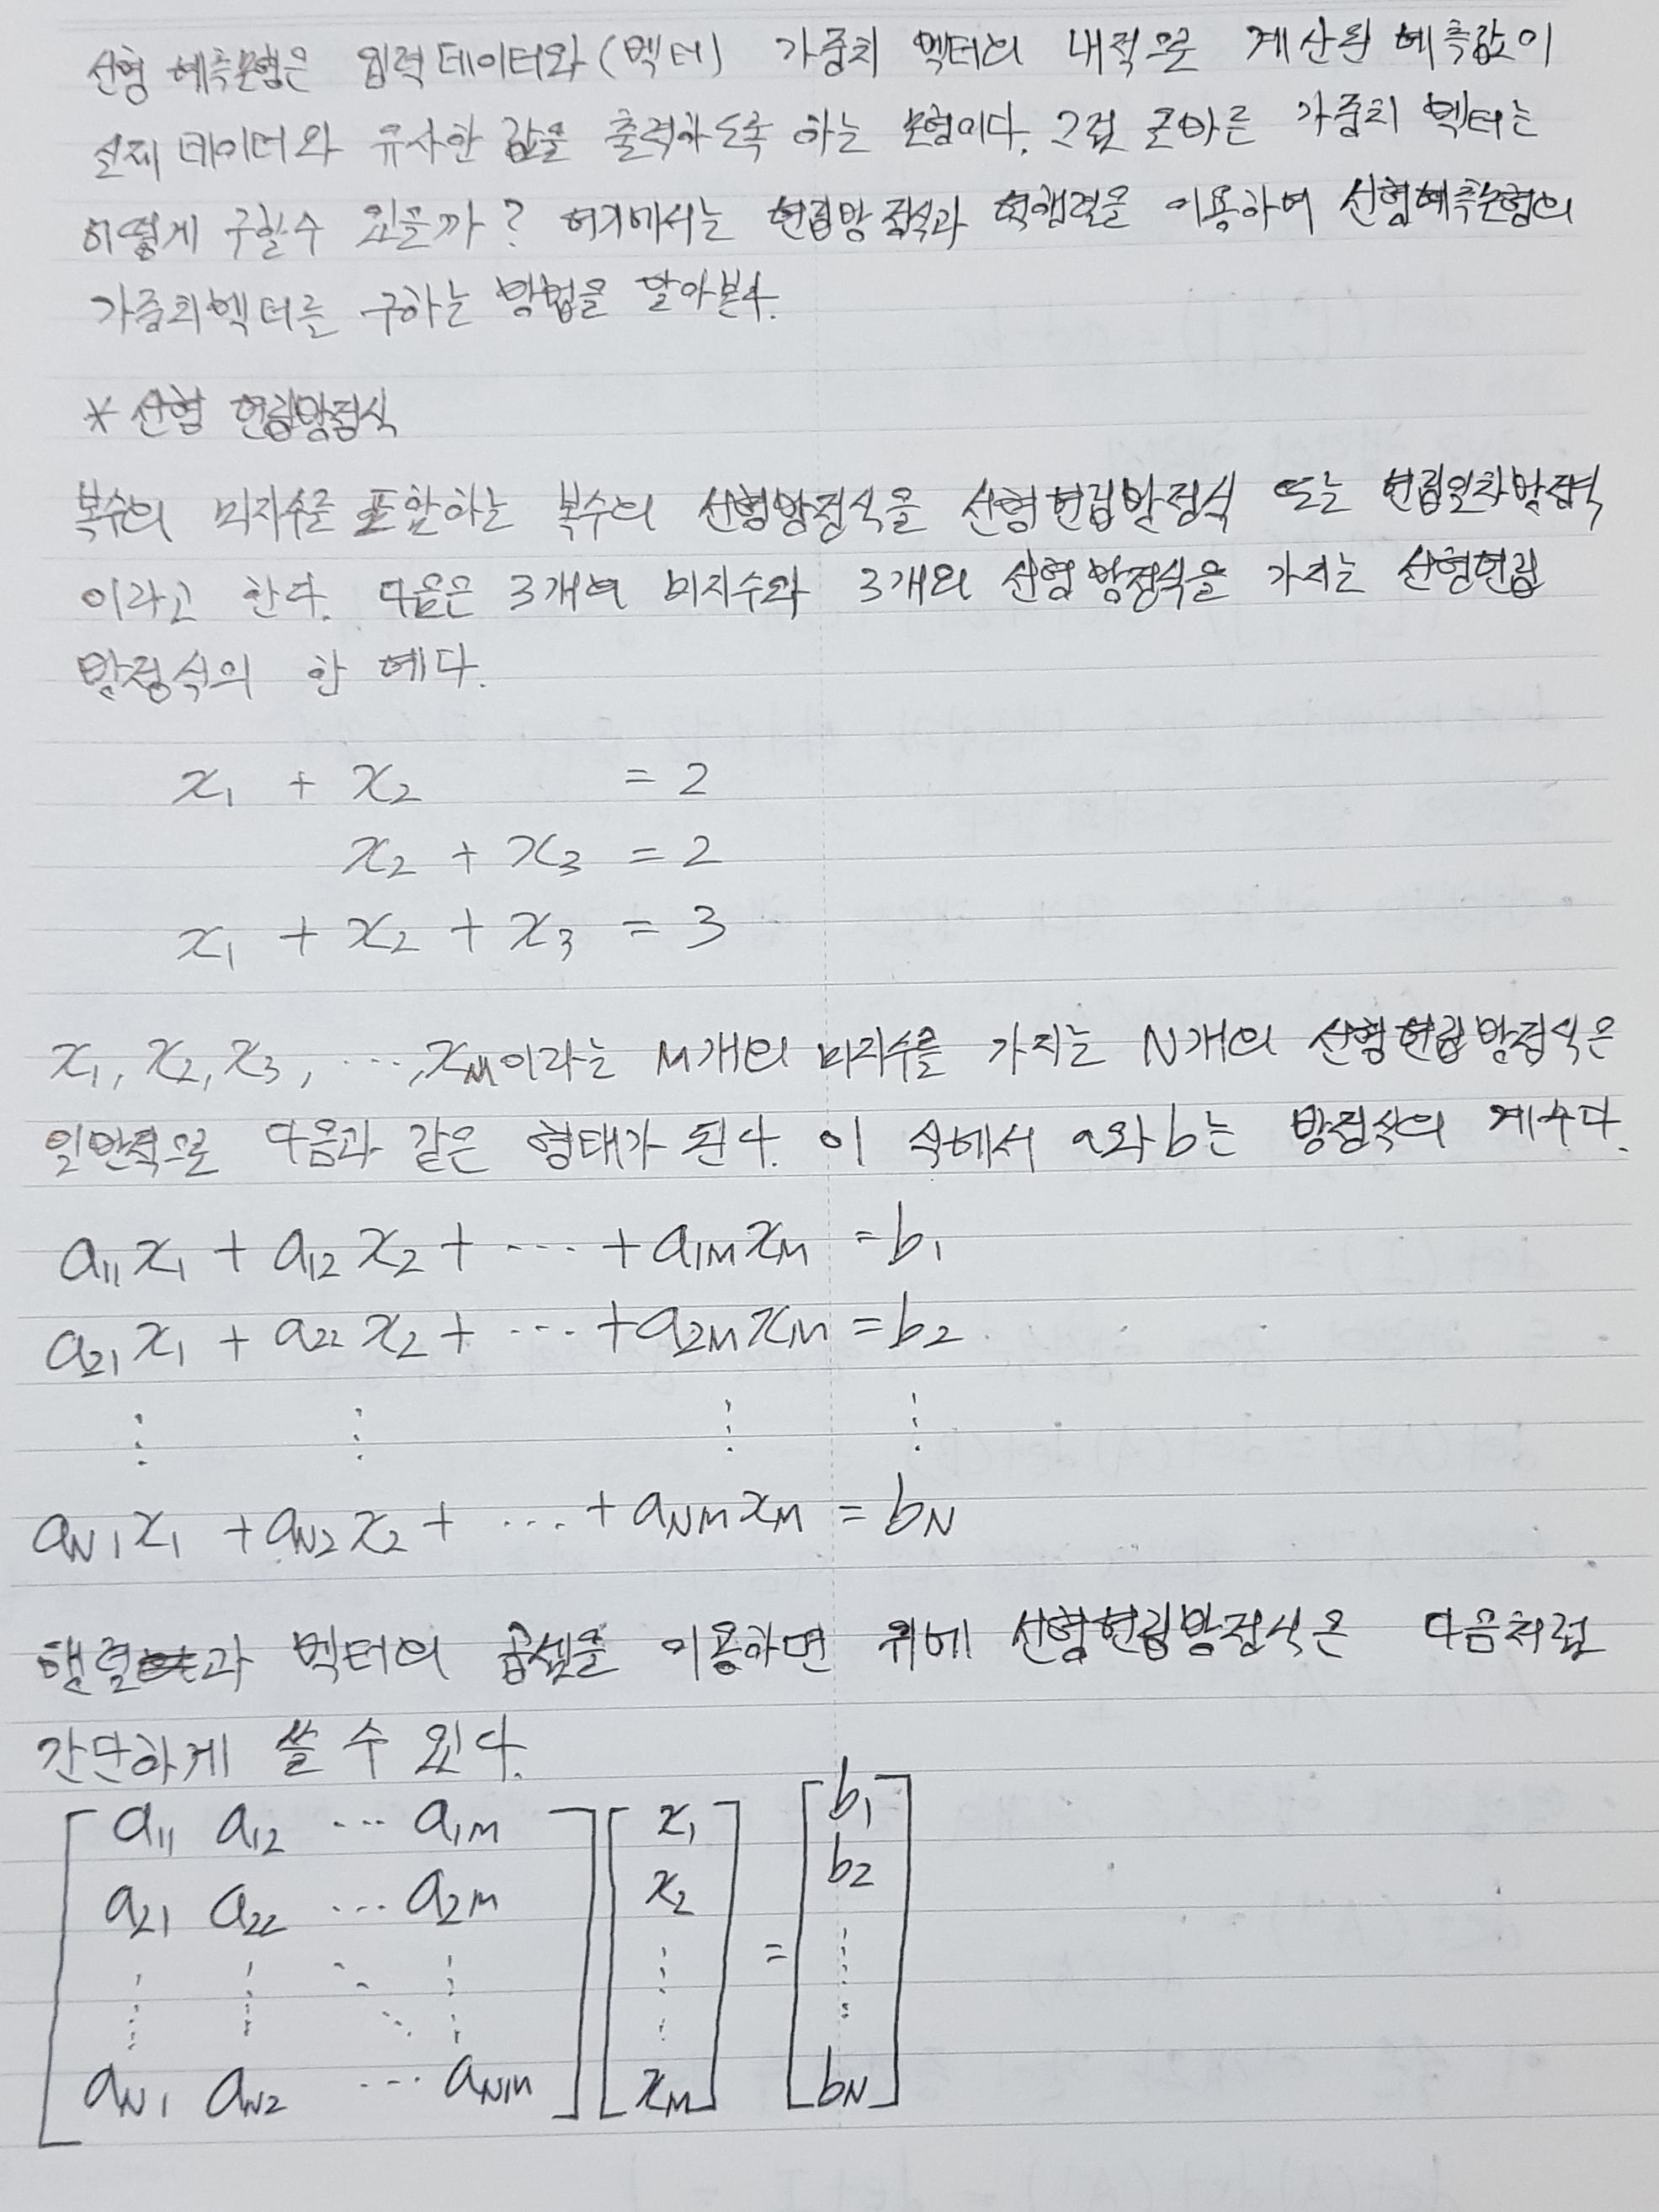 선형 예측모형은 입력데이터와(벡터) 가중치 벡터의 내적으로 계산된 예측값이
실제 데이터와 유사한 값을 출력하도록 하는 모형이다. 그럼 올바른 가중치 벡터는
어떻게 구할수 있을까? 여기에서는 연립방정식과 역행렬을 이용하여 선형예측모형의
가중치벡터를 구하는 방법을 알아본다.
* 선형 연립방정식
복수의 미지수를 포함하는 복수의 선형방정식을 선형연립방정식 또는 연립일차방정식
이라고 한다. 다음은 3개의 미지수와 3개의 선형방정식을 가지는 선형연립
방정식의 한 예다.
x₁ + x₂ = 2
x₂ + x₃ = 2
x₁ + x₂ + x₃ = 3
x₁, x₂, x₃, ⋯, x_M이라는 M개의 미지수를 가지는 N개의 선형연립방정식은
일반적으로 다음과 같은 형태가 된다. 이 식에서 a와 b는 방정식의 계수다.
a₁₁x₁ + a₁₂x₂ + ⋯ + a_1M x_M = b₁
a₂₁x₁ + a₂₂x₂ + ⋯ + a_2M x_M = b₂
⋮ ⋮ ⋮ ⋮
a_N1 x₁ + a_N2 x₂ + ⋯ + a_NM x_M = b_N
행렬과 벡터의 곱셈을 이용하면 위에 선형연립방정식은 다음처럼
간단하게 쓸 수 있다.
[ a₁₁ a₁₂ ⋯ a_1M ] [ x₁ ] [ b₁ ]
[ a₂₁ a₂₂ ⋯ a_2M ] [ x₂ ] [ b₂ ]
[ ⋮ ⋮ ⋱ ⋮ ] [ ⋮ ] = [ ⋮ ]
[ a_N1 a_N2 ⋯ a_NM ] [ x_M ] [ b_N ]